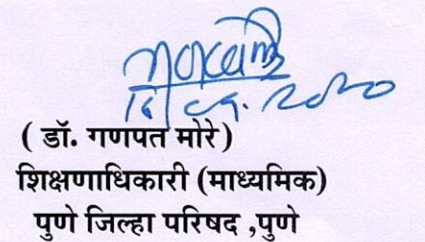 ( डॉ. गणपत मोरे)
शिक्षणाधिकारी (माध्यमिक)
पुणे जिल्हा परिषद ,पुणे